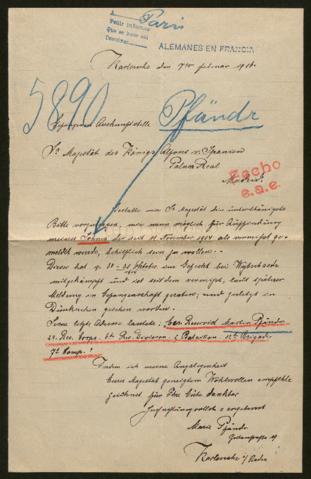 Paris
Pedir informe
ALEMANES EN FRANCIA
Karlsruhe den 7ten Februar 1916
5890
Pfändr
Sr Majestät des Königs Alfons v. Spanien
Palacio Real
Madrid
Hecho
e.a.e.
Gestatte mir Sr Majestät die unterthänigste
Bitte vorzutragen, mir womöglich für Auffindung
meines Sohnes der seit 11. November 1914 als vermisst ge-
meldet wurde, behilflich sein zu wollen.
Dieser hat v. Oktober im Gefecht bei
mitgekämpft und ist seit dem vermisst, laut späterer
Meldung in Gefangenschaft geraten, und zuletzt in
Dünkirchen gesehen worden.
Seine letzte Adresse lautete: Martin Pfändr
Res. Corps. Res. Division. Bataillon
Comp.
Indem ich meine Angelegenheit
Eurer Majestät geneigtem Wohlwollen empfehle
zeichnet für Ihre Güte dankbar
Hochachtungsvollst u. ergebenst
Marie Pfändr
Karlsruhe i/ Baden